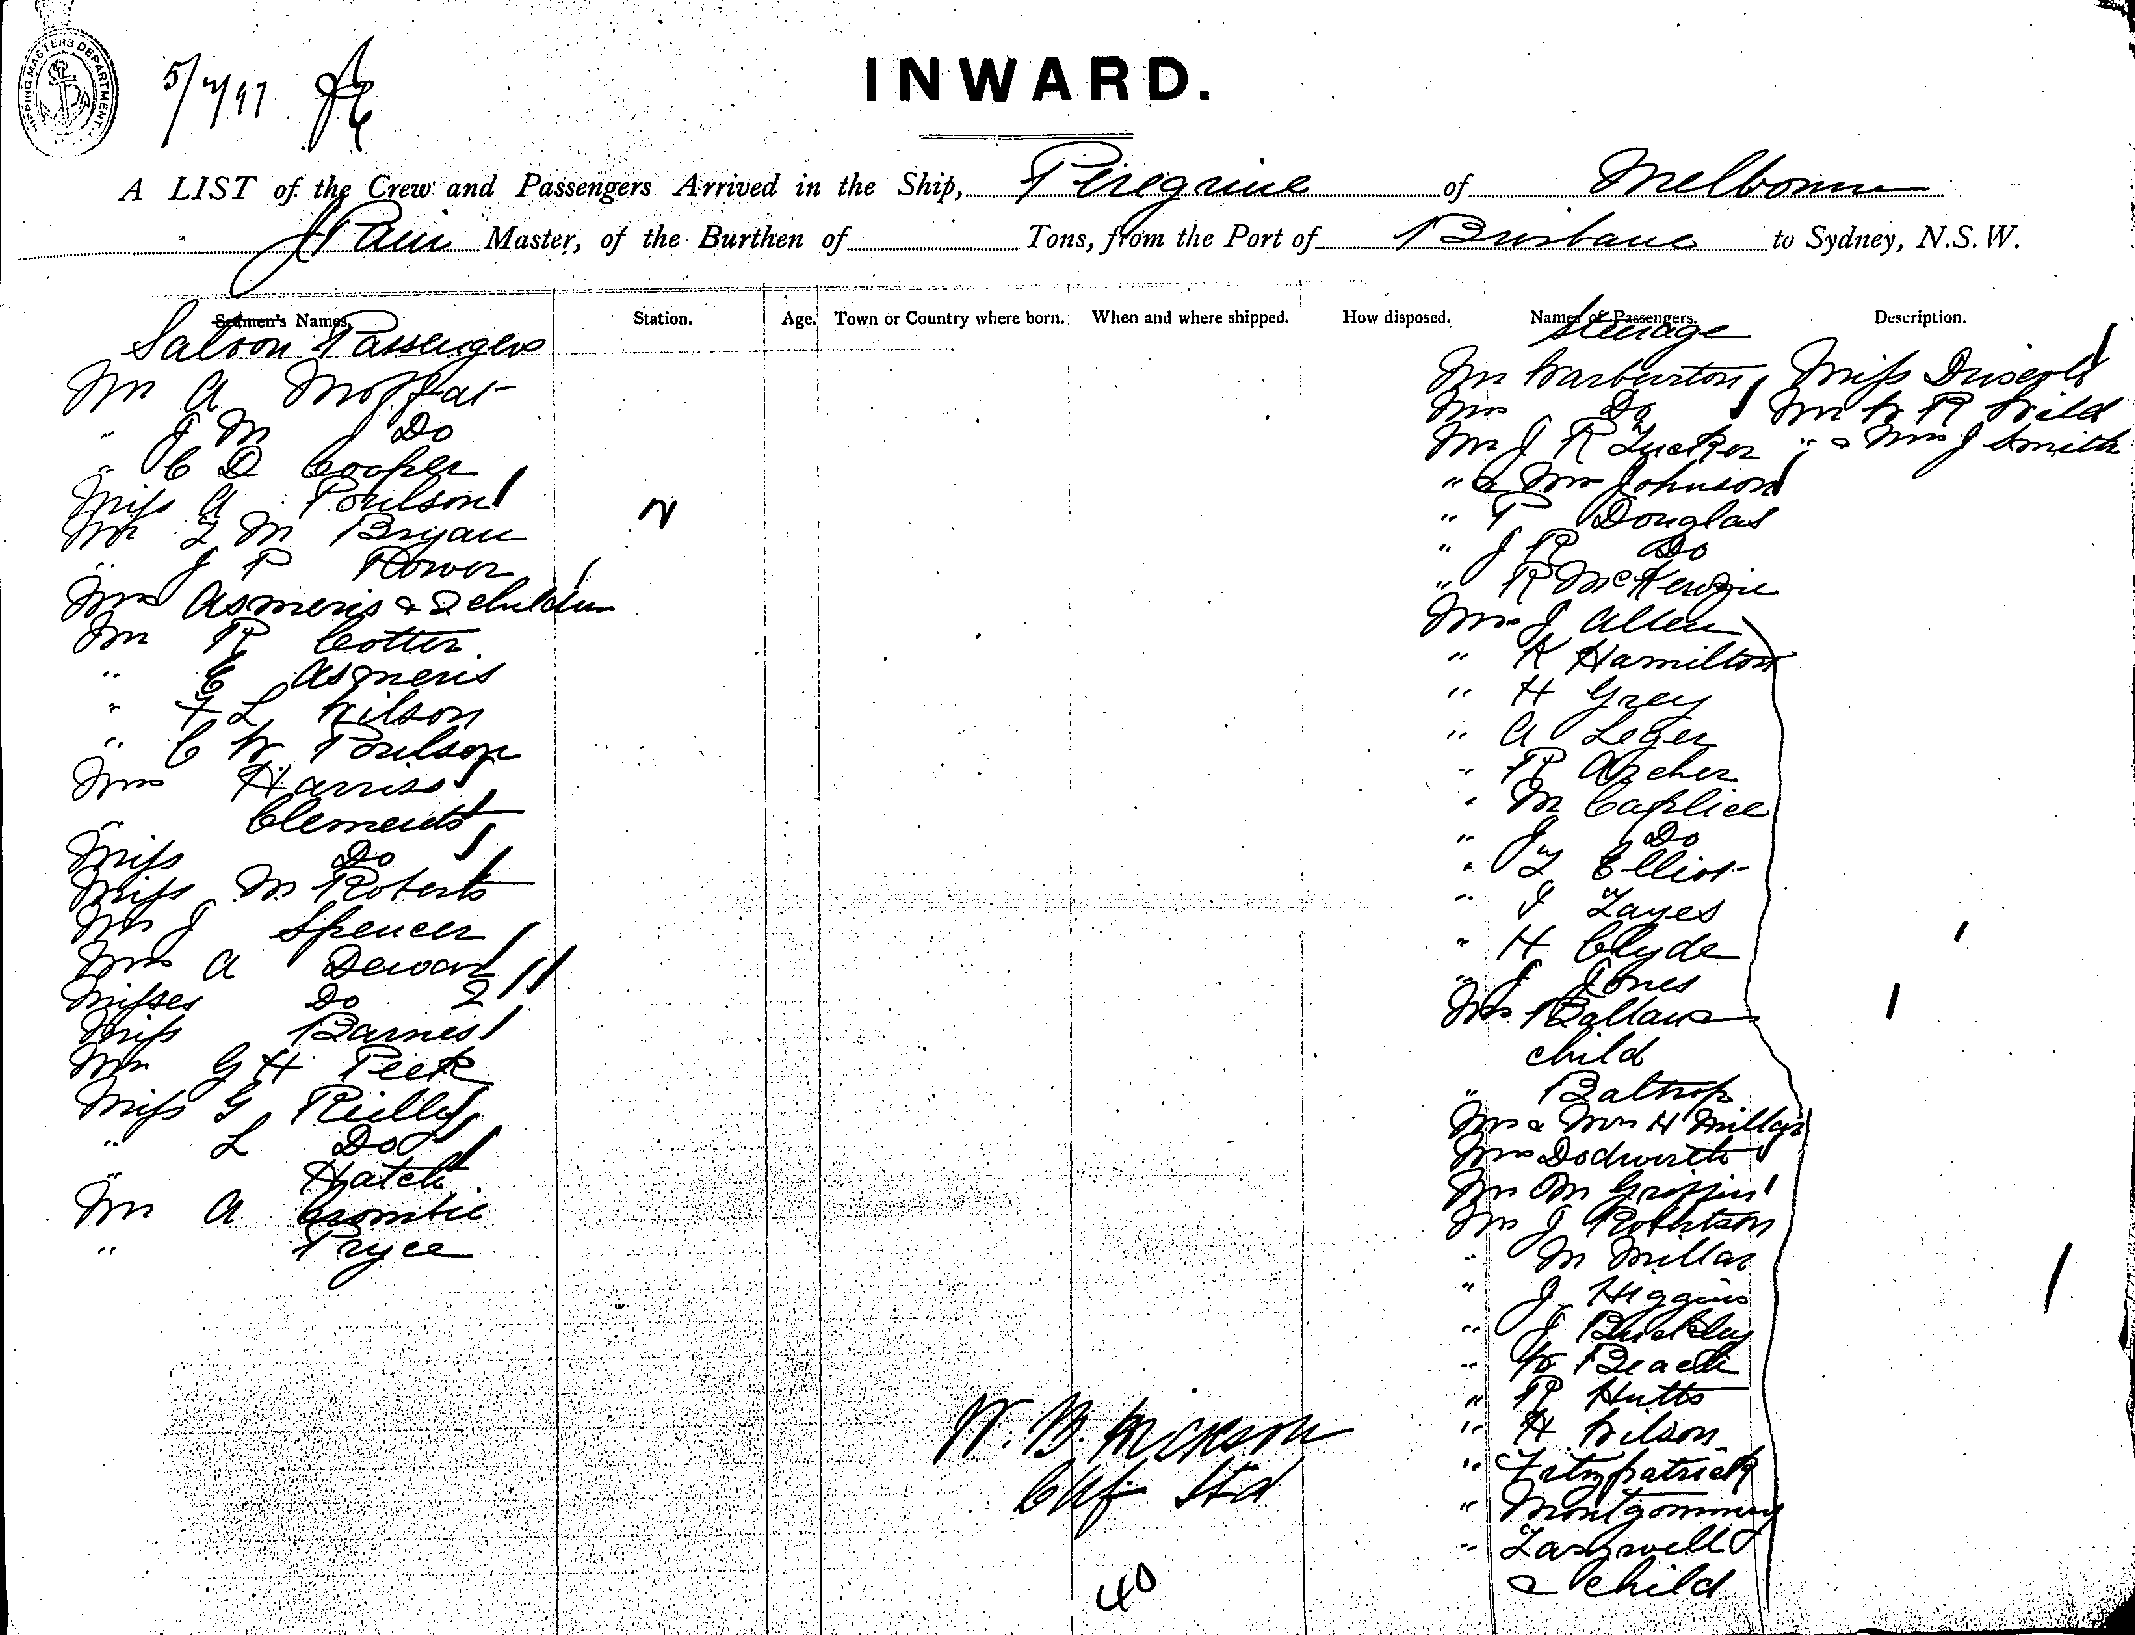 SHIPPING MASTERS DEPARTMENT.
5/7/97
INWARD.
A LIST of the Crew and Passengers Arrived in the Ship, Peregrine of Melbourne
J Pain Master, of the Burthen of Tons, from the Port of Brisbane to Sydney, N.S.W.
Seamen's Names. Station. Age. Town or Country where born. When and where shipped. How disposed. Names of Passengers. Description.
Saloon Passengers
Mr A Moffat
" J M Do
" C D Cooper
Miss A Poulson
Mr F M Bryan
" J P Power
Mrs Asmeris & 2 children
Mr R Cotter
" E Asmeris
" F L Wilson
" C W Poulson
Mrs Harriss
" Clements
Miss Do
Miss M Roberts
Mr J Spencer
Mrs A Dewar
Misses Do 2
Miss Barnes
Mr G H Peek
Miss G Reilly
" L Do
" Hatch
Mr A Crombie
" Pryce
Steerage
Mr Warburton
Mrs Do
Mr J R Tucker
" & Mrs Johnson
" P Douglas
" J R Do
" R McKenzie
Mr J Allen
" K Hamilton
" H Grey
" A Leger
" R Archer
" M Caplice
" J Do
" F Elliot
" J Fayes
" H Clyde
" J Jones
Mrs
child
" Baltrop
Mr & Mrs H Millar
Mrs Dodworth
Mr M Griffin
Mr J Robertson
" M Millar
" J Higgins
" J Buckley
" W Beach
" R Hutto
" H Wilson
" Fitzpatrick
" Montgommery
"
& child
Miss Driscoll
Mr W R Wild
" & Mrs J Smith
Std
40